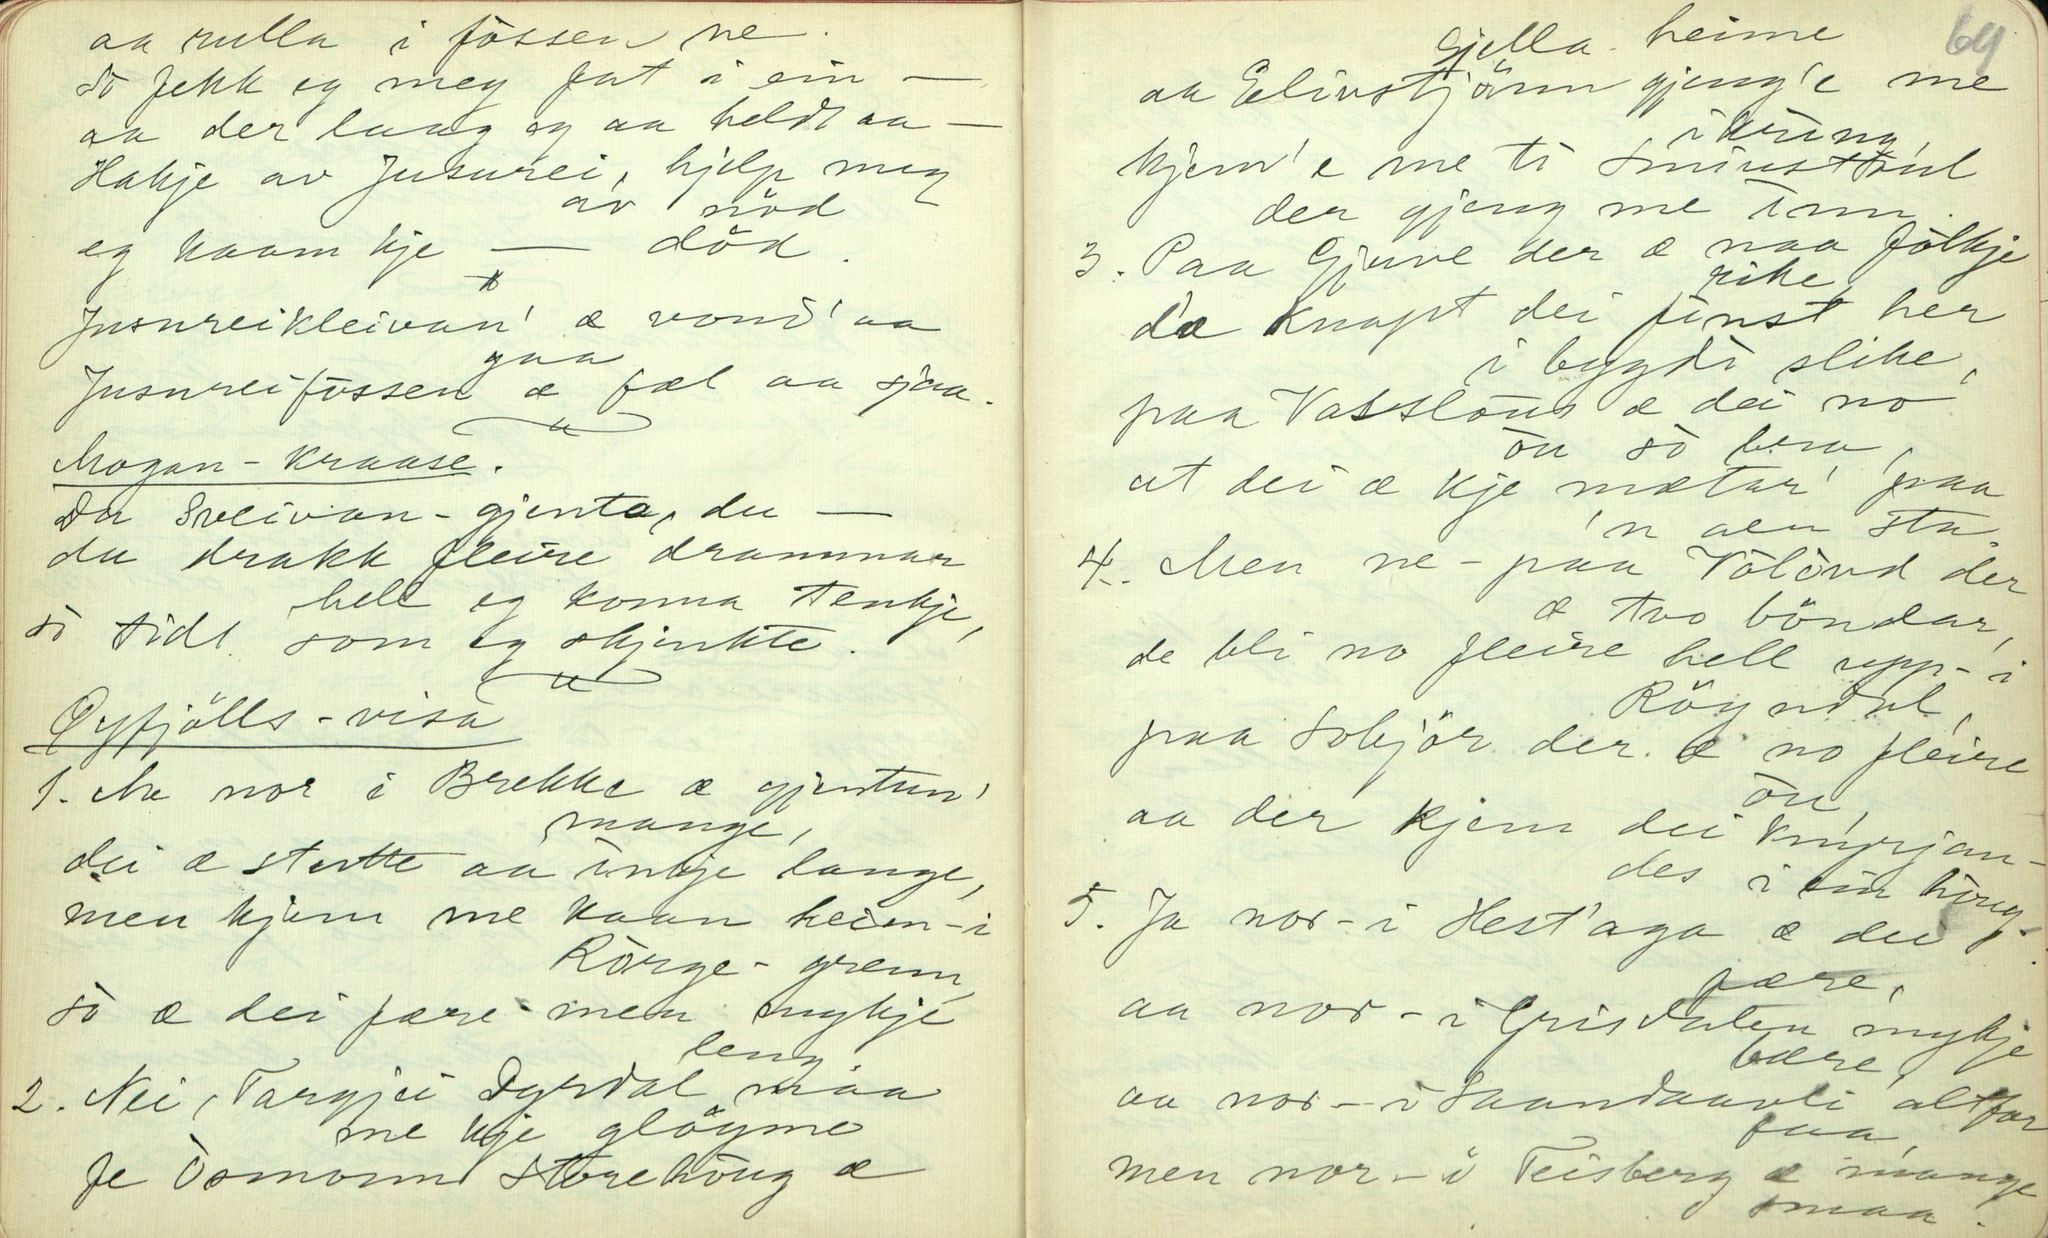 aa rulla i fössen ne.
Sò fekk eg meg fat i ein —
aa der laag eg aa heldt aa —
Hakje av Jusurei, hjelp meg
av nöd
eg kaam kje — död.
Jusureikleivan' æ vond' aa
gaa
Jusureifossen æ fæl aa sjaa.
Mogan-kraase.
Du Sveivan-gjenta, du —
du drakk fleire drammar
hell eg konna tenkje,
sò tidt som eg skjenkte.
Öyfjölls-visa
1. Me nor i Brekke æ gjentun'
mange,
dei æ stutte aa inkje lange,
men kjem me kaan heim-i
Rörge-grenn,
sò æ dei fære men mykje
leng
2. Nei, Targjei Dyrdal maa
me kje glöyme
Je Òsmonn Storehòug æ
64
Gjella heime
aa Elivstjönn gjeng'e me
ikring,
kjem'e me ti Smiustòul
der gjeng me inn.
3. Paa Gjuve der æ naa fòlkje
rike,
d'æ knapt dei finst her
i bygdi slike,
paa Vasslòus æ dei no
òu sò bra,
at dei æ kje mætar' paa
'n aen sta.
4. Men ne-paa Vòlòud der
æ tvo böndar,
de bli no fleire hell upp-i
Röyndal,
paa Sokjör der æ no fleire
òu,
aa der kjem dei knyrjan-
des i ein hòug.
5. Ja nor-i Hest'aga æ dei
fære,
aa nor-i Grisdalen mykje
bære,
aa nor-i Saandaavli altfor
faa,
men nor-i Teisberg æ mange
smaa.